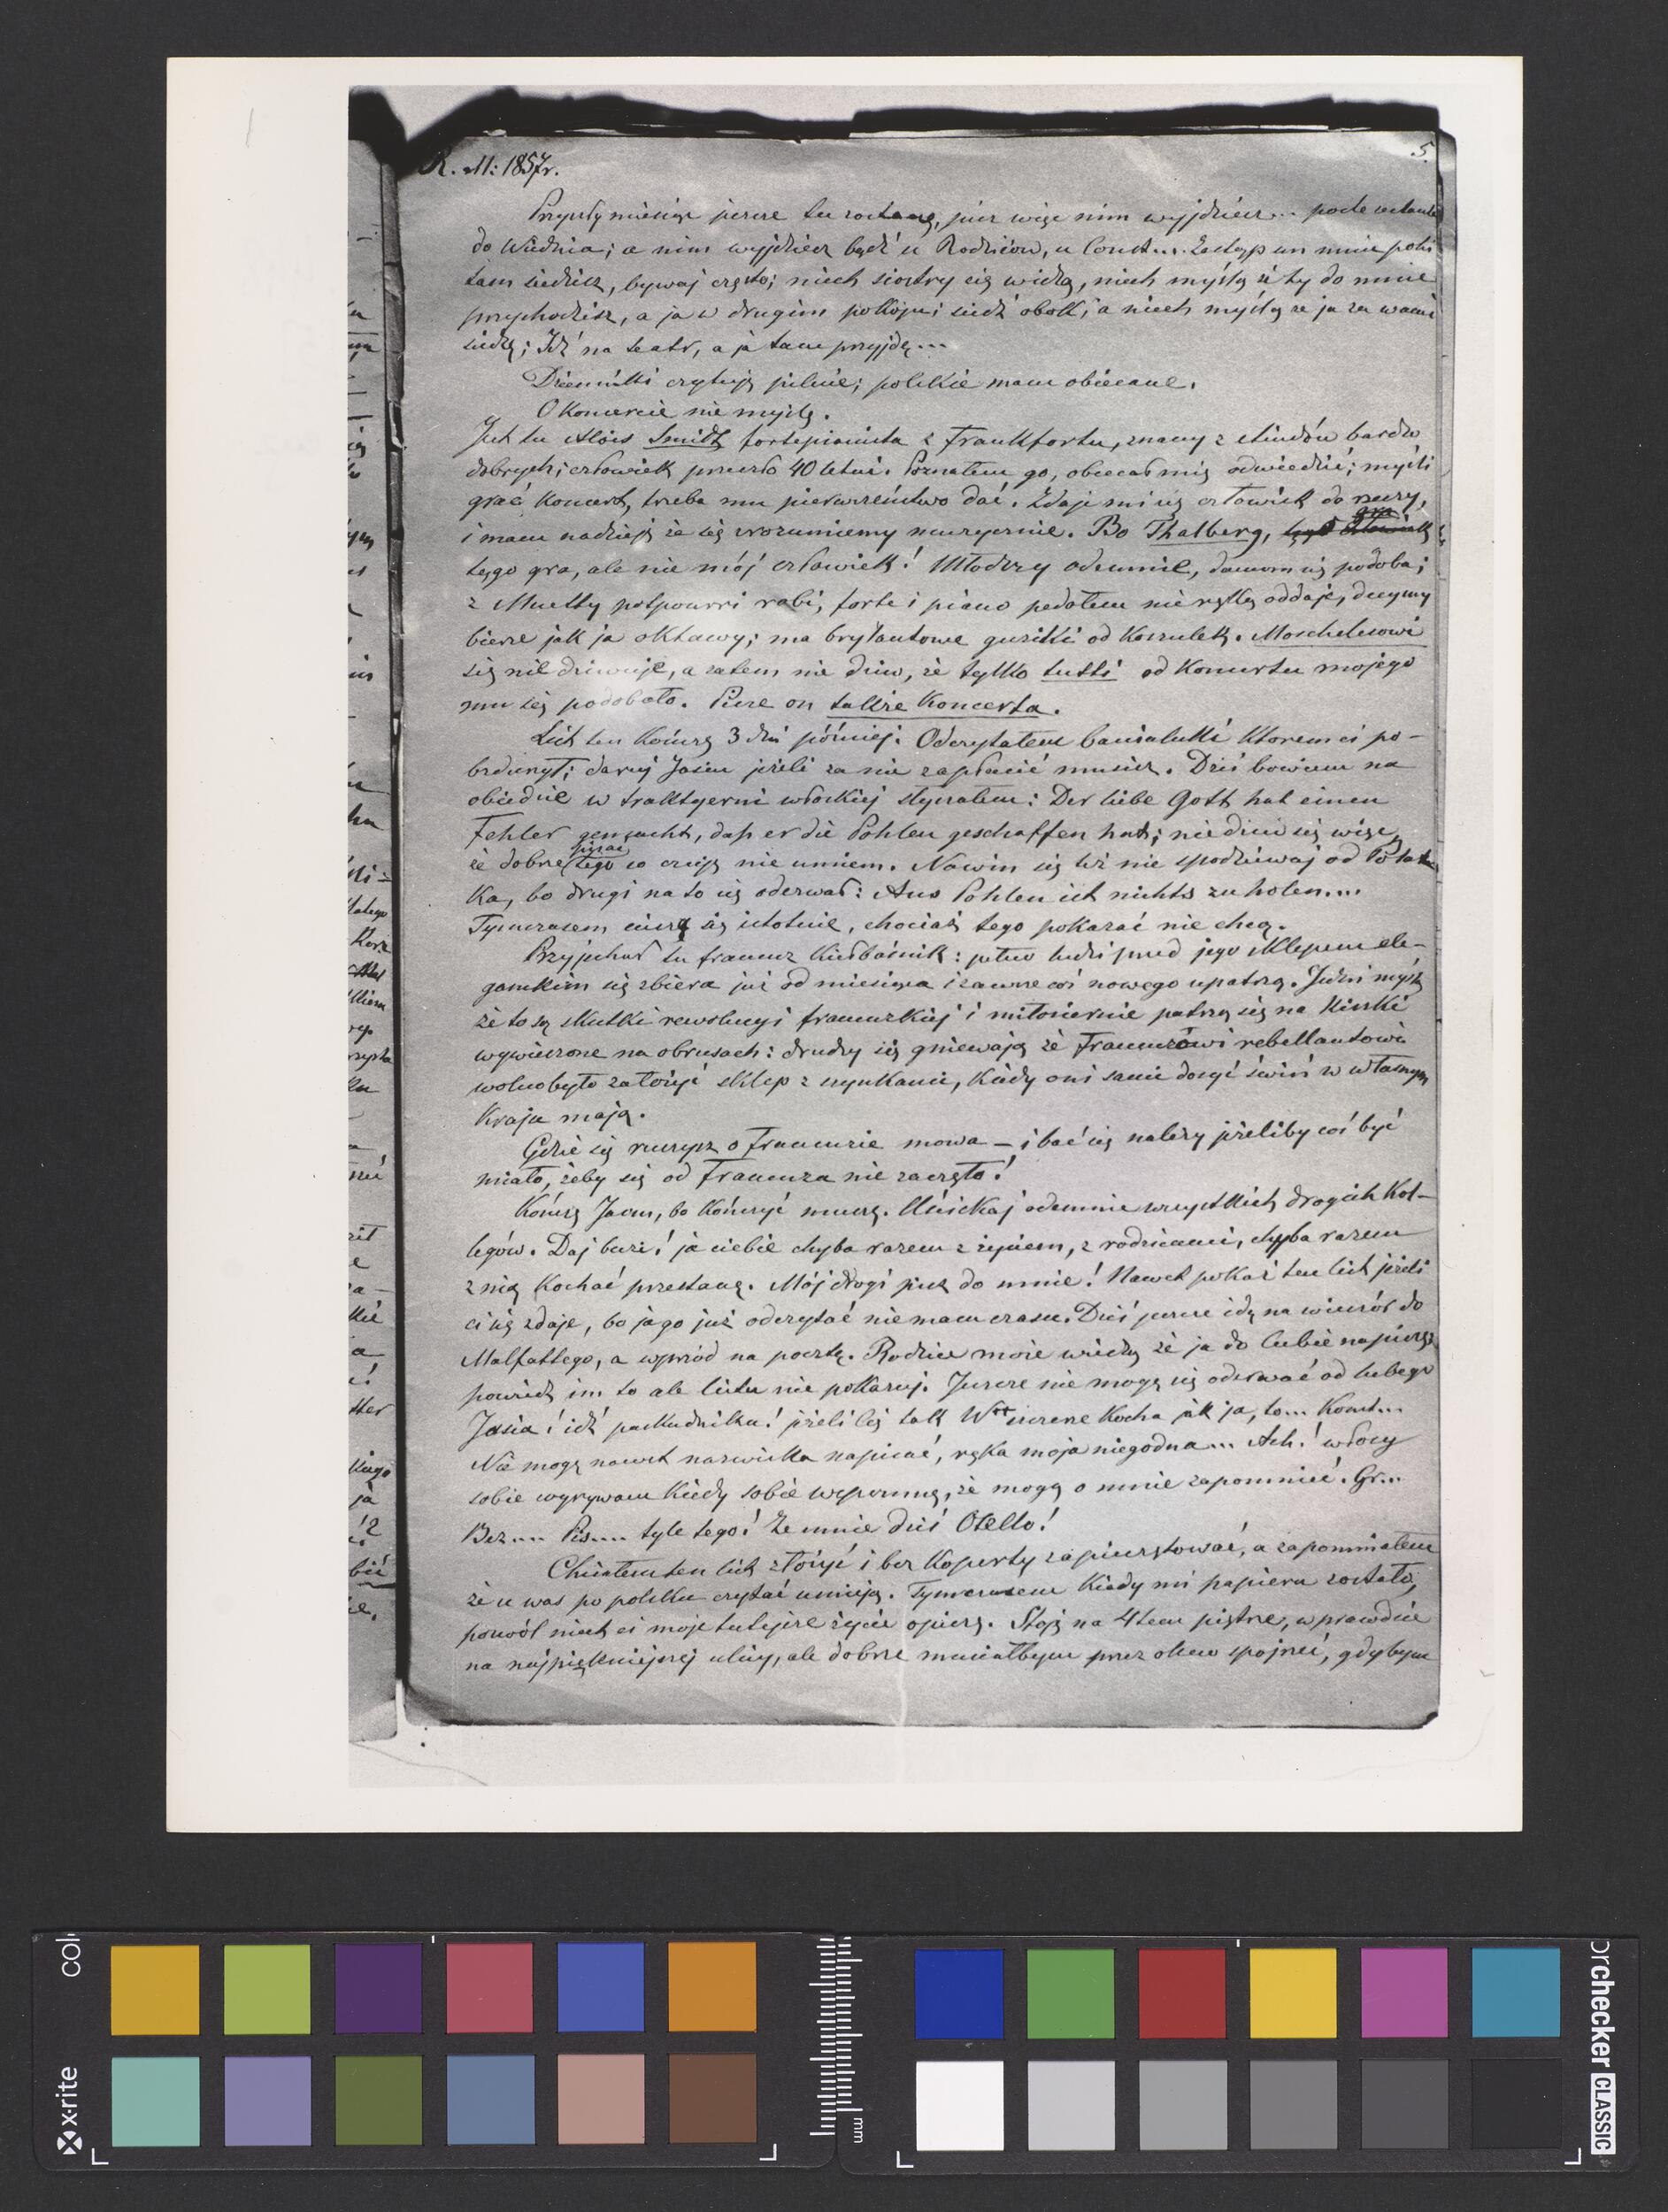 R. M: 1857r.
5.
Przyszły miesiąc jeszcze tu zostanę, pisz więc nim wyjdziesz... poste restante
do Wiednia; a nim wyjdziesz bądź u Rodziców, u Const.... Zastąp im mnie póki
tam siedzisz, bywaj często; niech siostry cię widzą, niech myślą że ty do mnie
przychodzisz, a ja w drugim pokoju; siedź obok, a niech myślą że ja za wami
siedzę; Idź na teatr, a ja tam przyjdę...
Dzienniki czytuję pilnie; polskie mam obiecane.
O Koncercie nie myślę.
Jest tu Alois Smidt fortepianista z Frankfortu, znany z etiudów bardzo
dobrych; człowiek przeszło 40 letni. Poznałem go, obiecał mię odwiedzić; myśli
grać Koncert, trzeba mu pierwszeństwo dać. Zdaje mi się człowiek do rzeczy,
gra
i mam nadzieję że się zrozumiemy muzycznie. Bo Thalberg,
tęgo gra, ale nie mój człowiek! Młodszy odemnie, damom się podoba;
z Muetty potpourri robi, forte i piano pedałem nie ręką oddaje, decymy
bierze jak ja oktawy; ma brylantowe guziki od Koszulek. Moschelesowi
się nie dziwuje, a zatem nie dziw, że tylko tutti od Koncertu mojego
mu się podobało. Pisze on także Koncerta.
List ten Kończę 3 dni później. Odczytałem banialuki Którem ci po-
bzdurzył; daruj Jasiu jeżeli za nie zapłacić musisz. Dziś bowiem na
obiedzie w traktyerni włoskiej słyszałem: Der liebe Gott hat einen
Fehler gemacht, daß er die Pohlen geschaffen hat; nie dziw się więc,
pisać
że dobrze tego co czuję nie umiem. Nowin się też nie spodziewaj od Pola-
ka, bo drugi na to się odezwał: Aus Pohlen ist nichts zu holen....
Tymczasem cieszą się istotnie, chociaż tego pokazać nie chcą.
Przyjechał tu francuz Kiełbaśnik: pełno ludzi przed jego sklepem ele-
ganckim się zbiera już od miesiąca i zawsze coś nowego upatrzą. Jedni myślą
że to są skutki rewolucyi francuzkiej i miłosiernie patrzą się na Kiszki
wywieszone na obrusach: drudzy się gniewają że Francuzowi rebellantowi
wolno było założyć sklep z szynkami, Kiedy oni sami dosyć świń w własnym
Kraju mają.
Gdzie się ruszysz o francuzie mowa — i bać się należy jeżeliby coś być
miało, żeby się od francuza nie zaczęło!
Kończę Jasiu, bo Kończyć muszę. Uściskaj odemnie wszystkich drogich Kol-
legów. Daj buzi! ja ciebie chyba razem z życiem, z rodzicami, chyba razem
z nią Kochać przestanę. Mój drogi pisz do mnie! Nawet pokaż ten list jeżeli
ci się zdaje, bo ja go już odczytać nie mam czasu. Dziś jeszcze idę na wieczór do
Malfattego, a wprzód na pocztę. Rodzice moie wiedzą że ja do Ciebie napiszę,
powiedz im to ale listu nie pokazuj. Jeszcze nie mogę się oderwać od lubego
Jasia! idź paskudniku! jeżeli cię tak W** szczerze Kocha jak ja, to... Konst...
Nie mogę nawet nazwiska napisać, ręka moja niegodna... Ach! włosy
sobie wyrywam Kiedy sobie wspomnę, że mogą o mnie zapomnieć. Gr...
Bez.... Pis.... tyle tego! Ze mnie dziś Otello!
Chciałem ten list złożyć i bez Koperty zapieczętować, a zapomniałem
że u was po polsku czytać umieją. Tymczasem Kiedy mi papieru zostało,
pozwól niech ci moje tutejsze życie opiszę. Stoję na 4tem piętrze, wprawdzie
na najpiękniejszej ulicy, ale dobrze musiałbym przez okno spojrzeć, gdybym